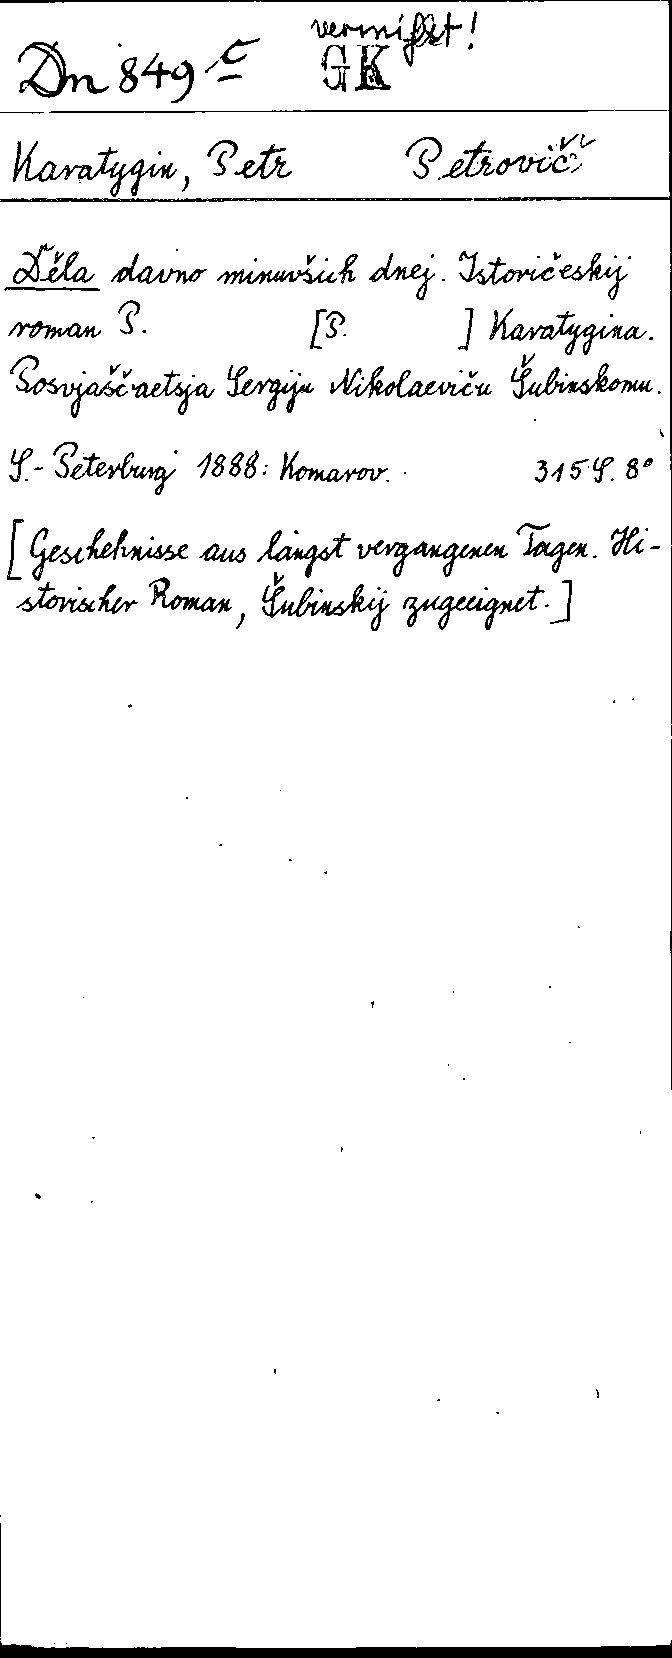 vermißt!
Dn 849 c GK
Karatygin, Petr Petrovič
Děla davno minuvšich dnej. Istoričeskij
roman P. [P. ] Karatygina.
Posvjaščaetsja Sergiju Nikolaeviču Šubinskomu.
S.-Peterburg 1888: Komarov. 315 S. 8°
[Geschehnisse aus längst vergangenen Tagen. Hi-
storischer Roman, Šubinskij zugeeignet.]